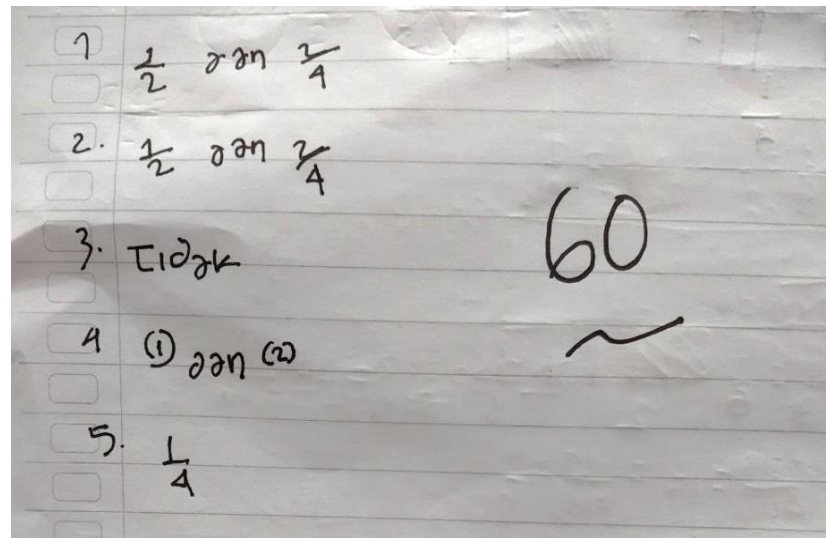 1 1/2 dan 2/4
2. 1/2 dan 2/4
3. Tidak
4 (1) dan (2)
5. 1/4
60